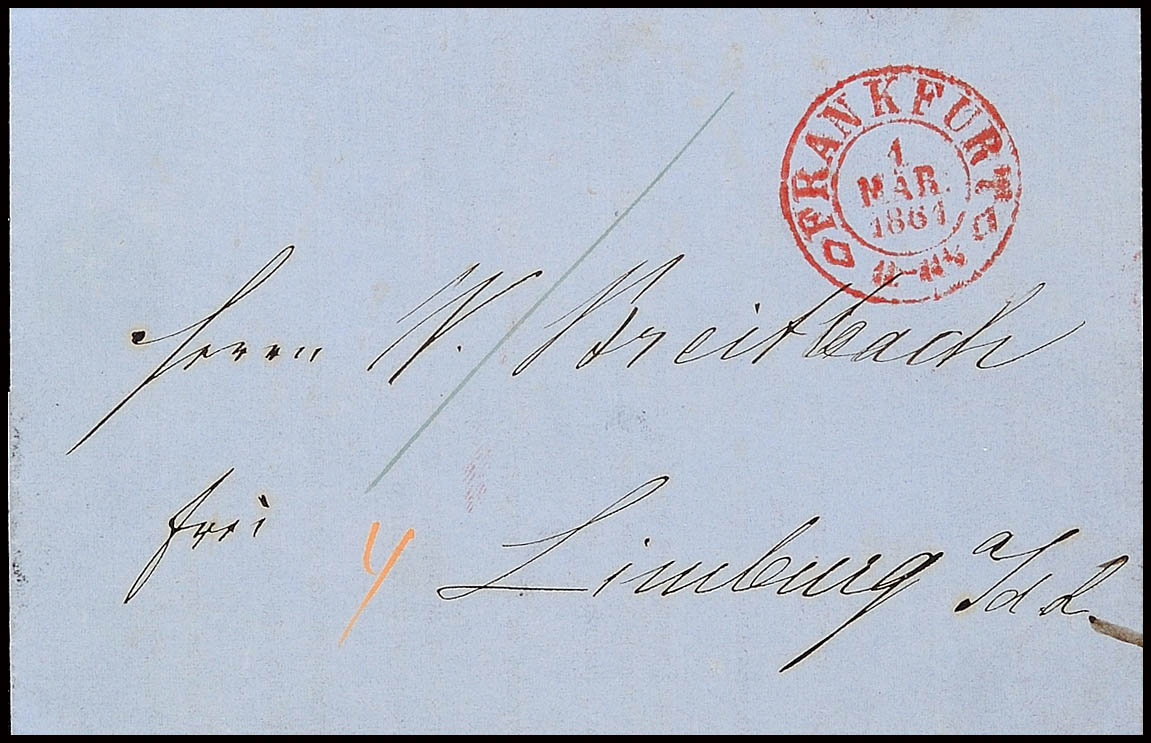 FRANKFURT
1
MAR.
1861
Herrn W. Breitbach
frei
4
Limburg a/d